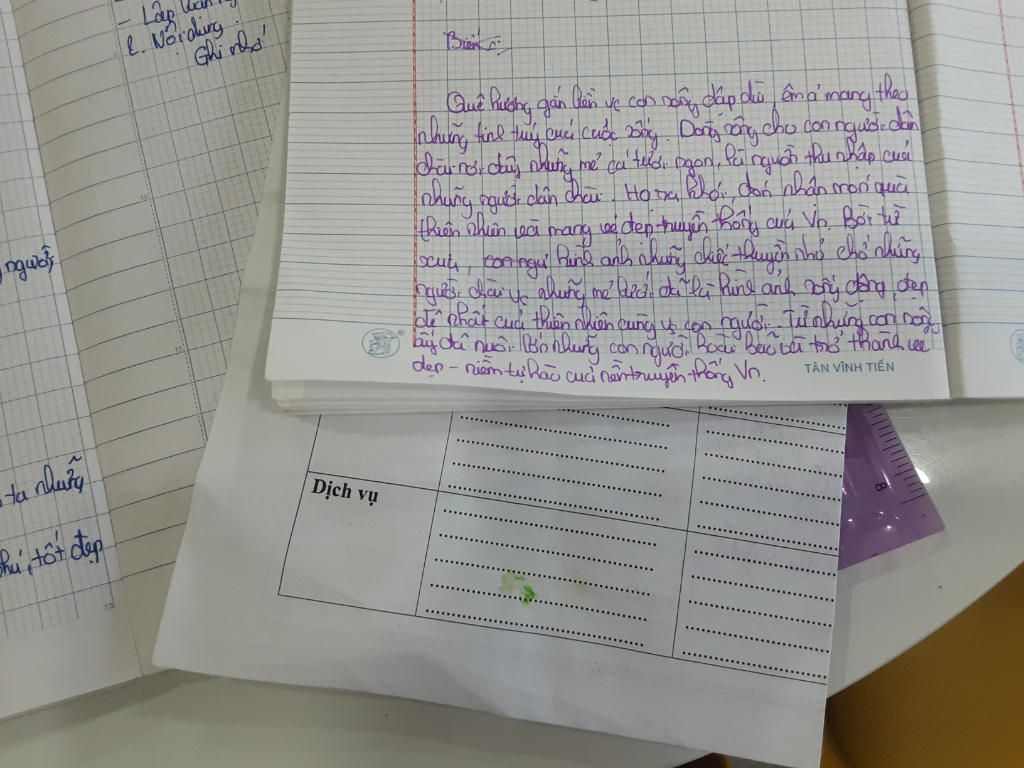 - Lập luận
2. Nội dung
Ghi nhớ
người
ta những
phú, tốt đẹp
Biển
Quê hương gắn liền vs con sông dập dìu, êm ả mang theo
những tinh túy của cuộc sống. Dòng sông cho con người dân
chài nơi đây những mẻ cá tươi ngon, là nguồn thu nhập của
những người dân chài. Họ ra khơi, đón nhận món quà
thiên nhiên và mang vẻ đẹp truyền thống của Vn. Bởi từ
xưa, con người hình ảnh những chiếc thuyền nhỏ chở những
người chài vs những mẻ lưới đã là hình ảnh sống động, đẹp
đẽ nhất của thiên nhiên cùng vs con người. Từ những con sông
ấy đã nuôi lớn những con người hoài bão và trở thành vẻ
đẹp - niềm tự hào của nền truyền thống Vn.
TÂN VĨNH TIẾN
Dịch vụ
8